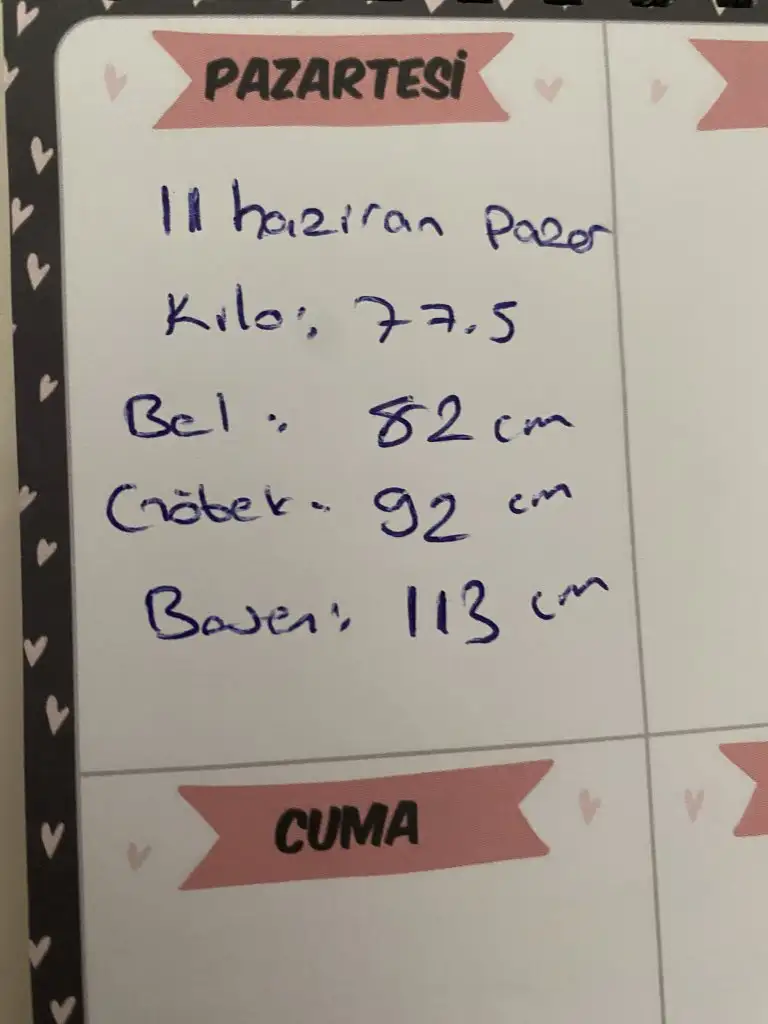 PAZARTESİ
11 haziran Pazar
Kilo: 77.5
Bel : 82 cm
Göbek: 92 cm
Basen: 113 cm
CUMA